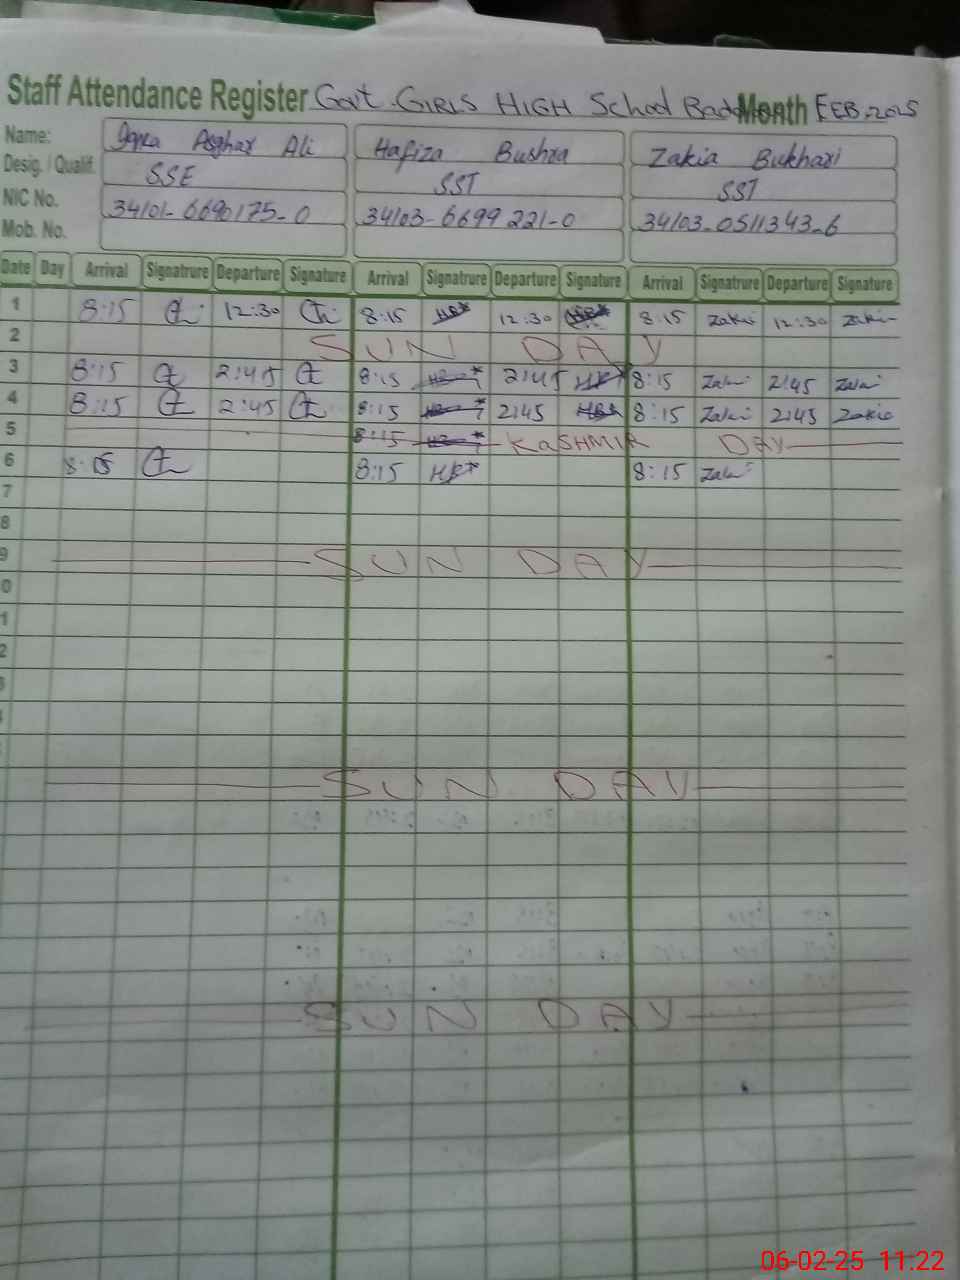 Staff Attendance Register Govt. GIRLS HIGH School Month FEB. 2025
Name: Iqra Asghar Ali Hafiza Bushra Zakia Bukhari
Desig. / Qualif. SSE SST SST
NIC No. 34101-6690175-0 34103-6699221-0 34103-0511343-6
Mob. No.
Date Day Arrival Signatrure Departure Signature Arrival Signatrure Departure Signature Arrival Signatrure Departure Signature
1 8:15 12:30 8:15 12:30 8:15 Zakia 12:30 Zakia
2 SUN DAY
3 8:15 2:45 8:15 2:45 8:15 Zakia 2:45 Zakia
4 8:15 2:45 8:15 2:45 8:15 Zakia 2:45 Zakia
5 8:15 KASHMIR DAY
6 8:15 8:15 Zakia
7
8
9 SUN DAY
0
1
2
SUN DAY
SUN DAY
06-02-25 11:22